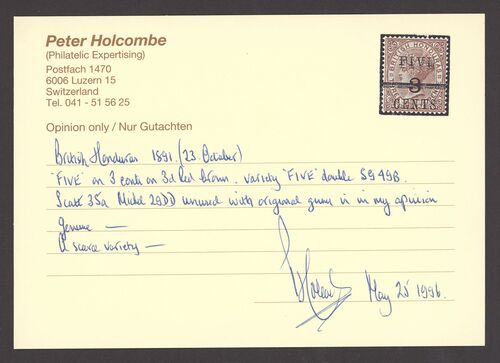 Peter Holcombe
(Philatelic Expertising)
Postfach 1470
6006 Luzern 15
Switzerland
Tel. 041 - 51 56 25
BRITISH HONDURAS
FIVE
3
CENTS
Opinion only / Nur Gutachten
British Honduras 1891. (23 October)
"FIVE" on 3 cents on 3d Red brown. variety "FIVE" double SG 49B.
Scott 35a Michel 29DD unused with original gum is in my opinion
genuine —
A scarce variety —
May 25 1996.